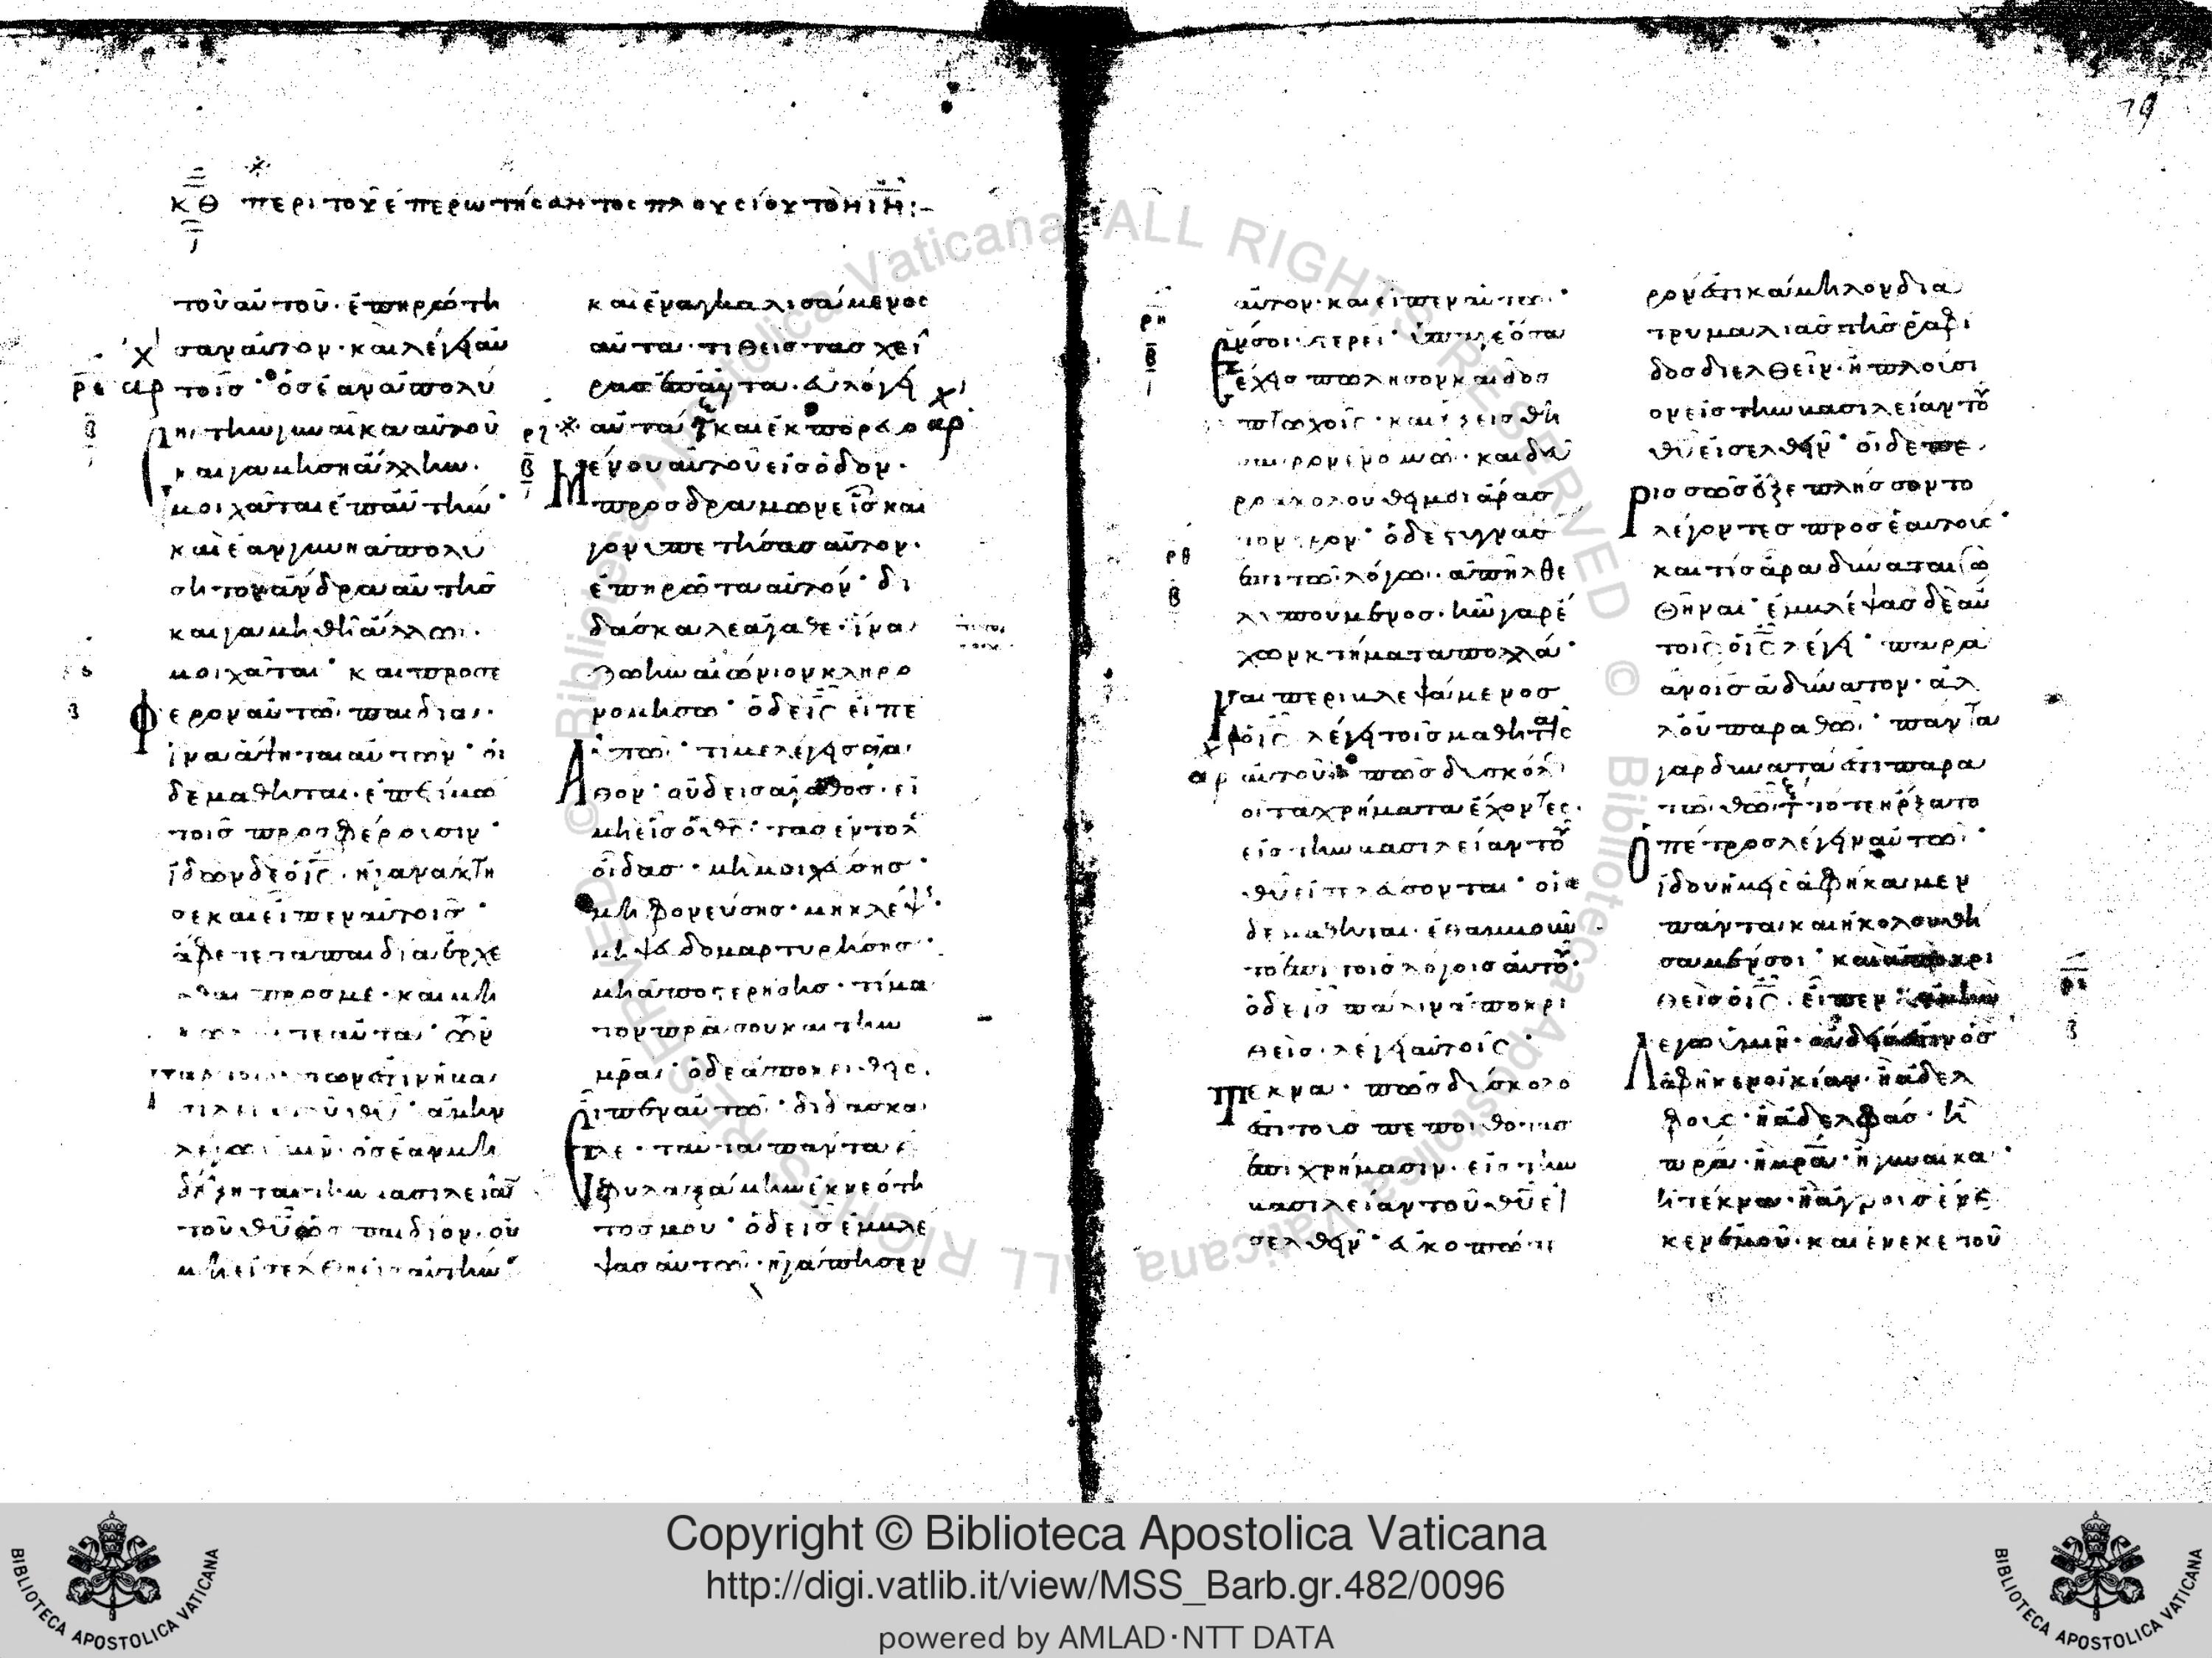 79
κθ περι τοῦ ἐπερωτήσαντος πλουσίου τὸν ιν:-
τοῦ αὐτοῦ· ἐπηρώτη
σαν αὐτον· και λέγει αὐ
τοῖσ· ὁσ ἐὰν ἀπολύ
ση τὴν γυναῖκα αὐτοῦ
και γαμήση ἄλλην·
μοιχᾶται ἐπ αὐτήν·
και ἐὰν γυνὴ ἀπολυ
ση τον ἄνδρα αὐτῆσ
και γαμηθῆ ἄλλω·
μοιχᾶται· και προσε
Φερον αὐτῶ παιδία·
ἵνα ἅψηται αὐτῶν· οἱ
δε μαθηται· ἐπετίμω
τοῖσ προσφέρουσιν·
ἰδὼν δε ὁ ις· ἠγανάκτη
σε και εἶπεν αὐτοῖσ·
ἄφετε τα παιδία ἔρχε
σθαι προσ με· και μὴ
κωλύετε αὐτά· τῶν
γαρ τοιούτων ἐστὶν ἡ βα
σιλεία τοῦ θυ· ἀμὴν
λέγω ὑμῖν· ὁσ ἐὰν μὴ
δέξηται τὴν βασιλείαν
τοῦ θυ ὡσ παιδίον· οὐ
μὴ εἰσέλθη εἰσ αὐτήν·
και ἐναγκαλισάμενος
αὐτα· τιθεὶσ τασ χεῖ
ρασ ἐπ αὐτα· εὐλόγει
αὐτά· και ἐκπορευο
Μένου αὐτοῦ εἰσ ὁδον·
προσδραμὼν εἷσ και
γονυπετήσασ αὐτον·
ἐπηρώτα αὐτόν· δι
δάσκαλε ἀγαθε· ἵνα
ζωὴν αἰώνιον κληρο
νομήσω· ὁ δε ις εἶπε
Αὐτῶ· τί με λέγεισ ἀγα
θον· οὐδεὶσ ἀγαθόσ· εἰ
μὴ εἷσ ὁ θς· τασ ἐντολ
οἶδασ· μὴ μοιχεύσησ·
μὴ φονεύσησ· μη κλέψ·
μὴ ψευδομαρτυρήσησ·
μὴ ἀποστερήσησ· τίμα
τον πρα σου και τὴν
μρα· ὁ δε ἀποκριθεὶς·
Εἶπεν αὐτῶ· διδάσκα
λε· ταῦτα πάντα ἐ
φυλαξάμην ἐκ νεότη
τοσ μου· ὁ δε ις ἐμβλε
ψασ αὐτῶ· ἠγάπησεν
αὐτον· και εἶπεν αὐτω·
Ἕν σοι ὑστερεῖ· ὕπαγε ὅσα
ἔχεισ πώλησον και δοσ
πτωχοῖς· και ἕξεισ θη
σαυρον ἐν οὐνω· και δεῦ
ρο ἀκολούθει μοι ἄρασ
τον στρον· ὁ δε στυγνασ
ἐπι τῶ λόγω· ἀπῆλθε
λυπουμενοσ· ἦν γαρ ἔ
χων κτήματα πολλά·
Και περιβλεψάμενοσ
ὁ ις λέγει τοῖσ μαθηταῖς
αὐτοῦ· πῶσ δυσκόλ
οἱ τα χρήματα ἔχοντες·
εἰσ τὴν βασιλείαν τοῦ
θυ εἰσελεύσονται· οἱ
δε μαθηται· ἐθαμβοῦν
το ἐπι τοῖσ λόγοισ αὐτοῦ·
ὁ δε ισ πάλιν ἀποκρι
θεὶσ· λέγει αὐτοῖς·
Τεκνα· πῶσ δύσκολο
ἐστι τοὺσ πεποιθοτασ
ἐπι χρήμασιν· εἰσ τὴν
βασιλείαν τοῦ θυ εἰ
σελθεῖν· εὐκοπώτε
ρον ἐστι κάμηλον δια
τρυμαλιᾶσ τῆσ ραφί
δοσ διελθεῖν· ἢ πλούσι
ον εἰσ τὴν βασιλείαν τοῦ
θυ εἰσελθεῖν· οἱ δε πε
Ρισσῶσ ἐξεπλήσσοντο
λέγοντεσ προσ ἑαυτοὺς·
και τίσ ἄρα δύναται σω
θῆναι· ἐμβλέψασ δὲ αὐ
τοῖς ὁ ις λέγει· παρα
ἀνοισ ἀδύνατον· ἀλ
λ οὐ παρα θω· πάντα
γαρ δυνατά ἐστι παρα
τῶ θω· τότε ἤρξατο
Ὁ πέτροσ λέγειν αὐτῶ·
ἰδου ἡμεῖς ἀφήκαμεν
πάντα και ἠκολουθή
σαμέν σοι· και ἀποκρι
θεὶσ ὁ ις· εἶπεν ἀμὴν
Λεγω ὑμῖν· οὐδείσ ἐστιν ὁσ
ἀφῆκεν οἰκίαν· ἢ ἀδελ
φοὺς· ἢ ἀδελφάσ· ἢ
πρα· ἢ μρα· ἢ γυναικα·
ἢ τέκνα· ἢ ἀγροὺσ ἕνε
κεν ἐμοῦ· και ἕνεκε τοῦ
Copyright © Biblioteca Apostolica Vaticana
http://digi.vatlib.it/view/MSS_Barb.gr.482/0096
powered by AMLAD·NTT DATA
BIBLIOTECA APOSTOLICA VATICANA
BIBLIOTECA APOSTOLICA VATICANA